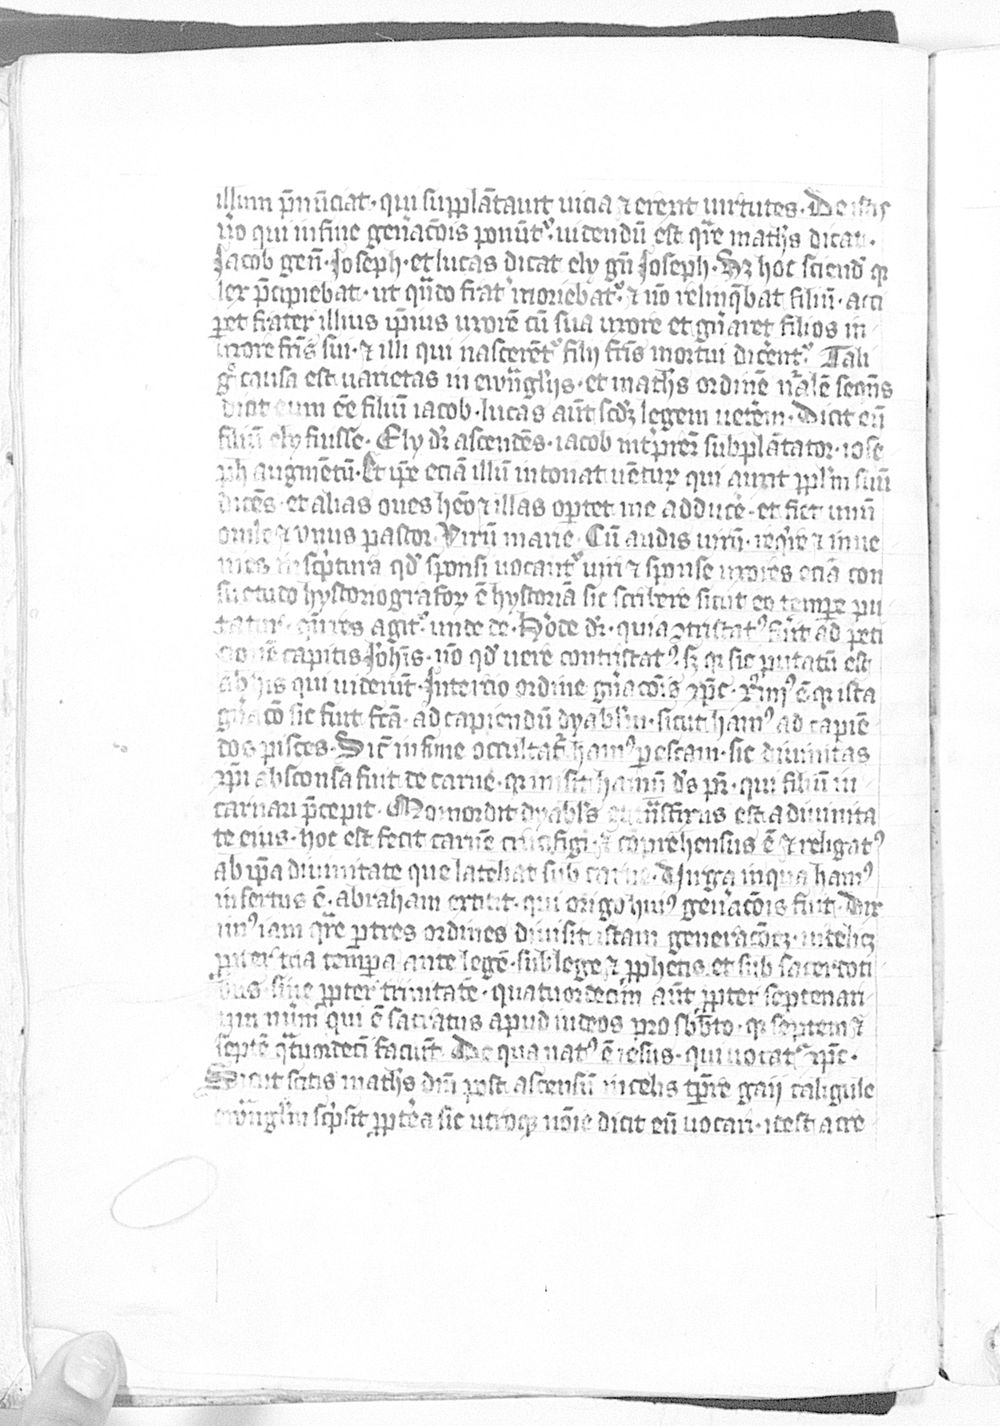 illum p̄nūciat · qui supplātauit uicia ⁊ erexit uirtutes · De istis
ūo qui in fine gen̄acōis ponūt᷒ · uidendū est qr̄e math̄s dicat ·
Jacob gen̄ · Joseph · et lucas dicat ely gn̄ Joseph · Sꝫ hoc sciend̄ ꝙ
lex p̄cipiebat · ut qn̄do frat̄ moriebat᷒ · ⁊ nō relinq̄bat filiū · acci
ꝑet frater illius ip̄ius uxorē cū sua uxore et gn̄aret filios in
uxore fr̄is sui · ⁊ illi qui nascerēt᷒ filij fr̄is mortui dicerent᷒ Tali
gͦ causa est uarietas in ewn̄glijs · et math̄s ordinē nr̄alē seqn̄s
dicit eum ēe filiū iacob · lucas aūt scd̄ꝫ legem ueterem · Dicit eū
filiū ely fuisse · Ely dr̄ ascendēs · iacob int̄p̄r̄ subplātator · iose
ph augmētū · Et ip̄e eciā illū intonat uētuꝝ qui auxit ppl̄m suū
dicēs · et alias oues hēo ⁊ illas oꝑtet me adducē · et fiet unū
ouile ⁊ vnus pastor · Virū marie · Cū audis uirū · reqr̄e ⁊ inue
nies in sc̄ptura qd̄ sponsi uocant᷒ uiri ⁊ sponse uxores eciā con
suetudo hystoriografoꝝ ē hystoriā sic scribere sicut eo temꝑe pu
tatur · qn̄ res agit᷒ · unde de · h̄ode dr̄ · quia ꝯtristat᷒ fuit ad peti
cionē capitis Joh̄is · nō qd̄ uere contristat᷒ · sꝫ ꝙ sic putatū est
ab his qui uiderūt · In tercio ordine gn̄acōis xp̄c · xiiij᷒ ē ꝙ ista
gn̄acō sic fuit fc̄a · ad capiendū dyabl̄m · sicut ham᷒ ad capiē
dos pisces · Sic̄ in fine occultat̄ ham᷒ ꝑ escam · sic diuinitas
xp̄i absconsa fuit de carne · ꝙ misit hamū ds̄ pr̄ · qui filiū in
carnari p̄cepit · Momordit dyabl̄s est a diuinita
te eius · hoc est fecit carnē crucifigi · ⁊ cōprehensus ē ⁊ religat᷒
ab ip̄a diuinitate que latebat sub carne · Uirga in qua ham᷒
insertus ē · abraham extitit · qui origo hui᷒ gen̄acōis fuit · Dix
im᷒ iam qr̄e ꝑ tres ordines diuisit istam generacōeꝫ · intelicꝫ
ꝓpter tria temp̄a ante legē · sub lege ⁊ ꝓphetis et sub sacerdoti
bus · siue ꝓpter trinitatē · quatuordecim aūt ꝓpter septenari
um nūm̄ qui ē sacratus apud iudeos pro sb̄bto · ꝙ septem ⁊
septē qͣtuordeci faciūt · De qua nat᷒ ē iesus · qui uocat᷒ xp̄c ·
Sicut scitis math̄s dn̄i post ascensū in celis tp̄re gaij caligule
ewn̄gl̄m sc̄psit ꝓpt̄ea sic utroqꝫ nōie dicit eū uocari · idest a cre